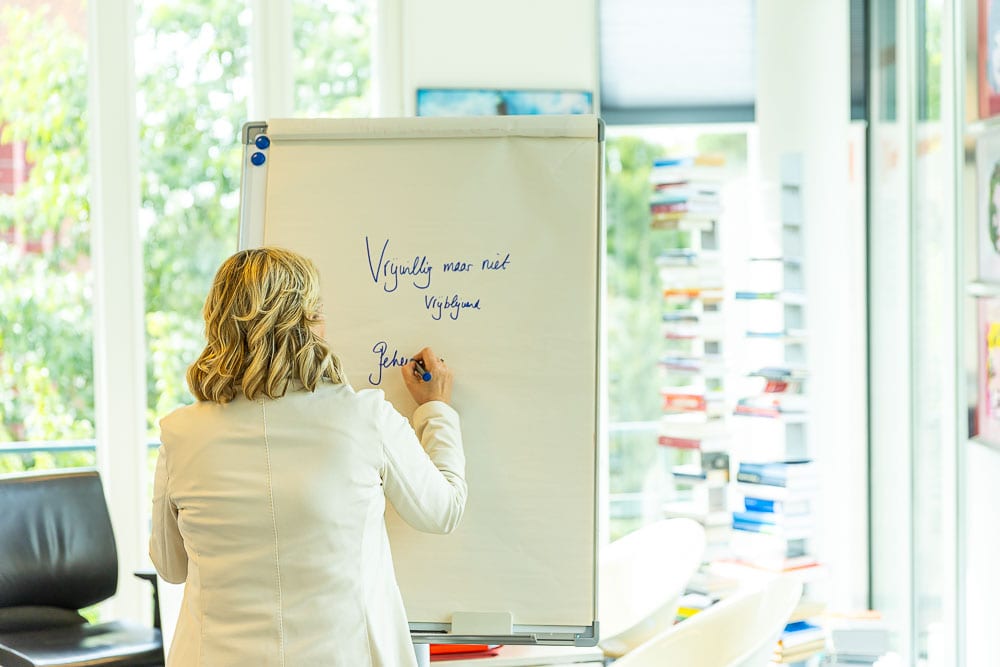 Vrijwillig maar niet
Vrijblijvend
Gehei